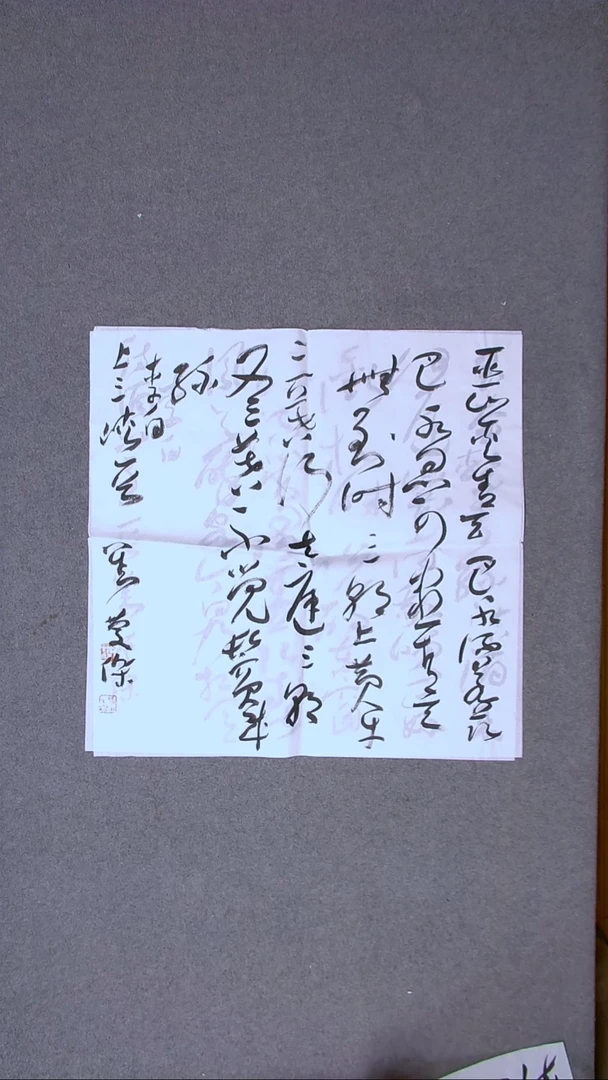 巫山夾青天巴水流若茲
巴水忽可盡青天
無到时三朝上黃牛
三暮行太遲三朝
又三暮不覺鬢成
絲
李白
上三峽一首